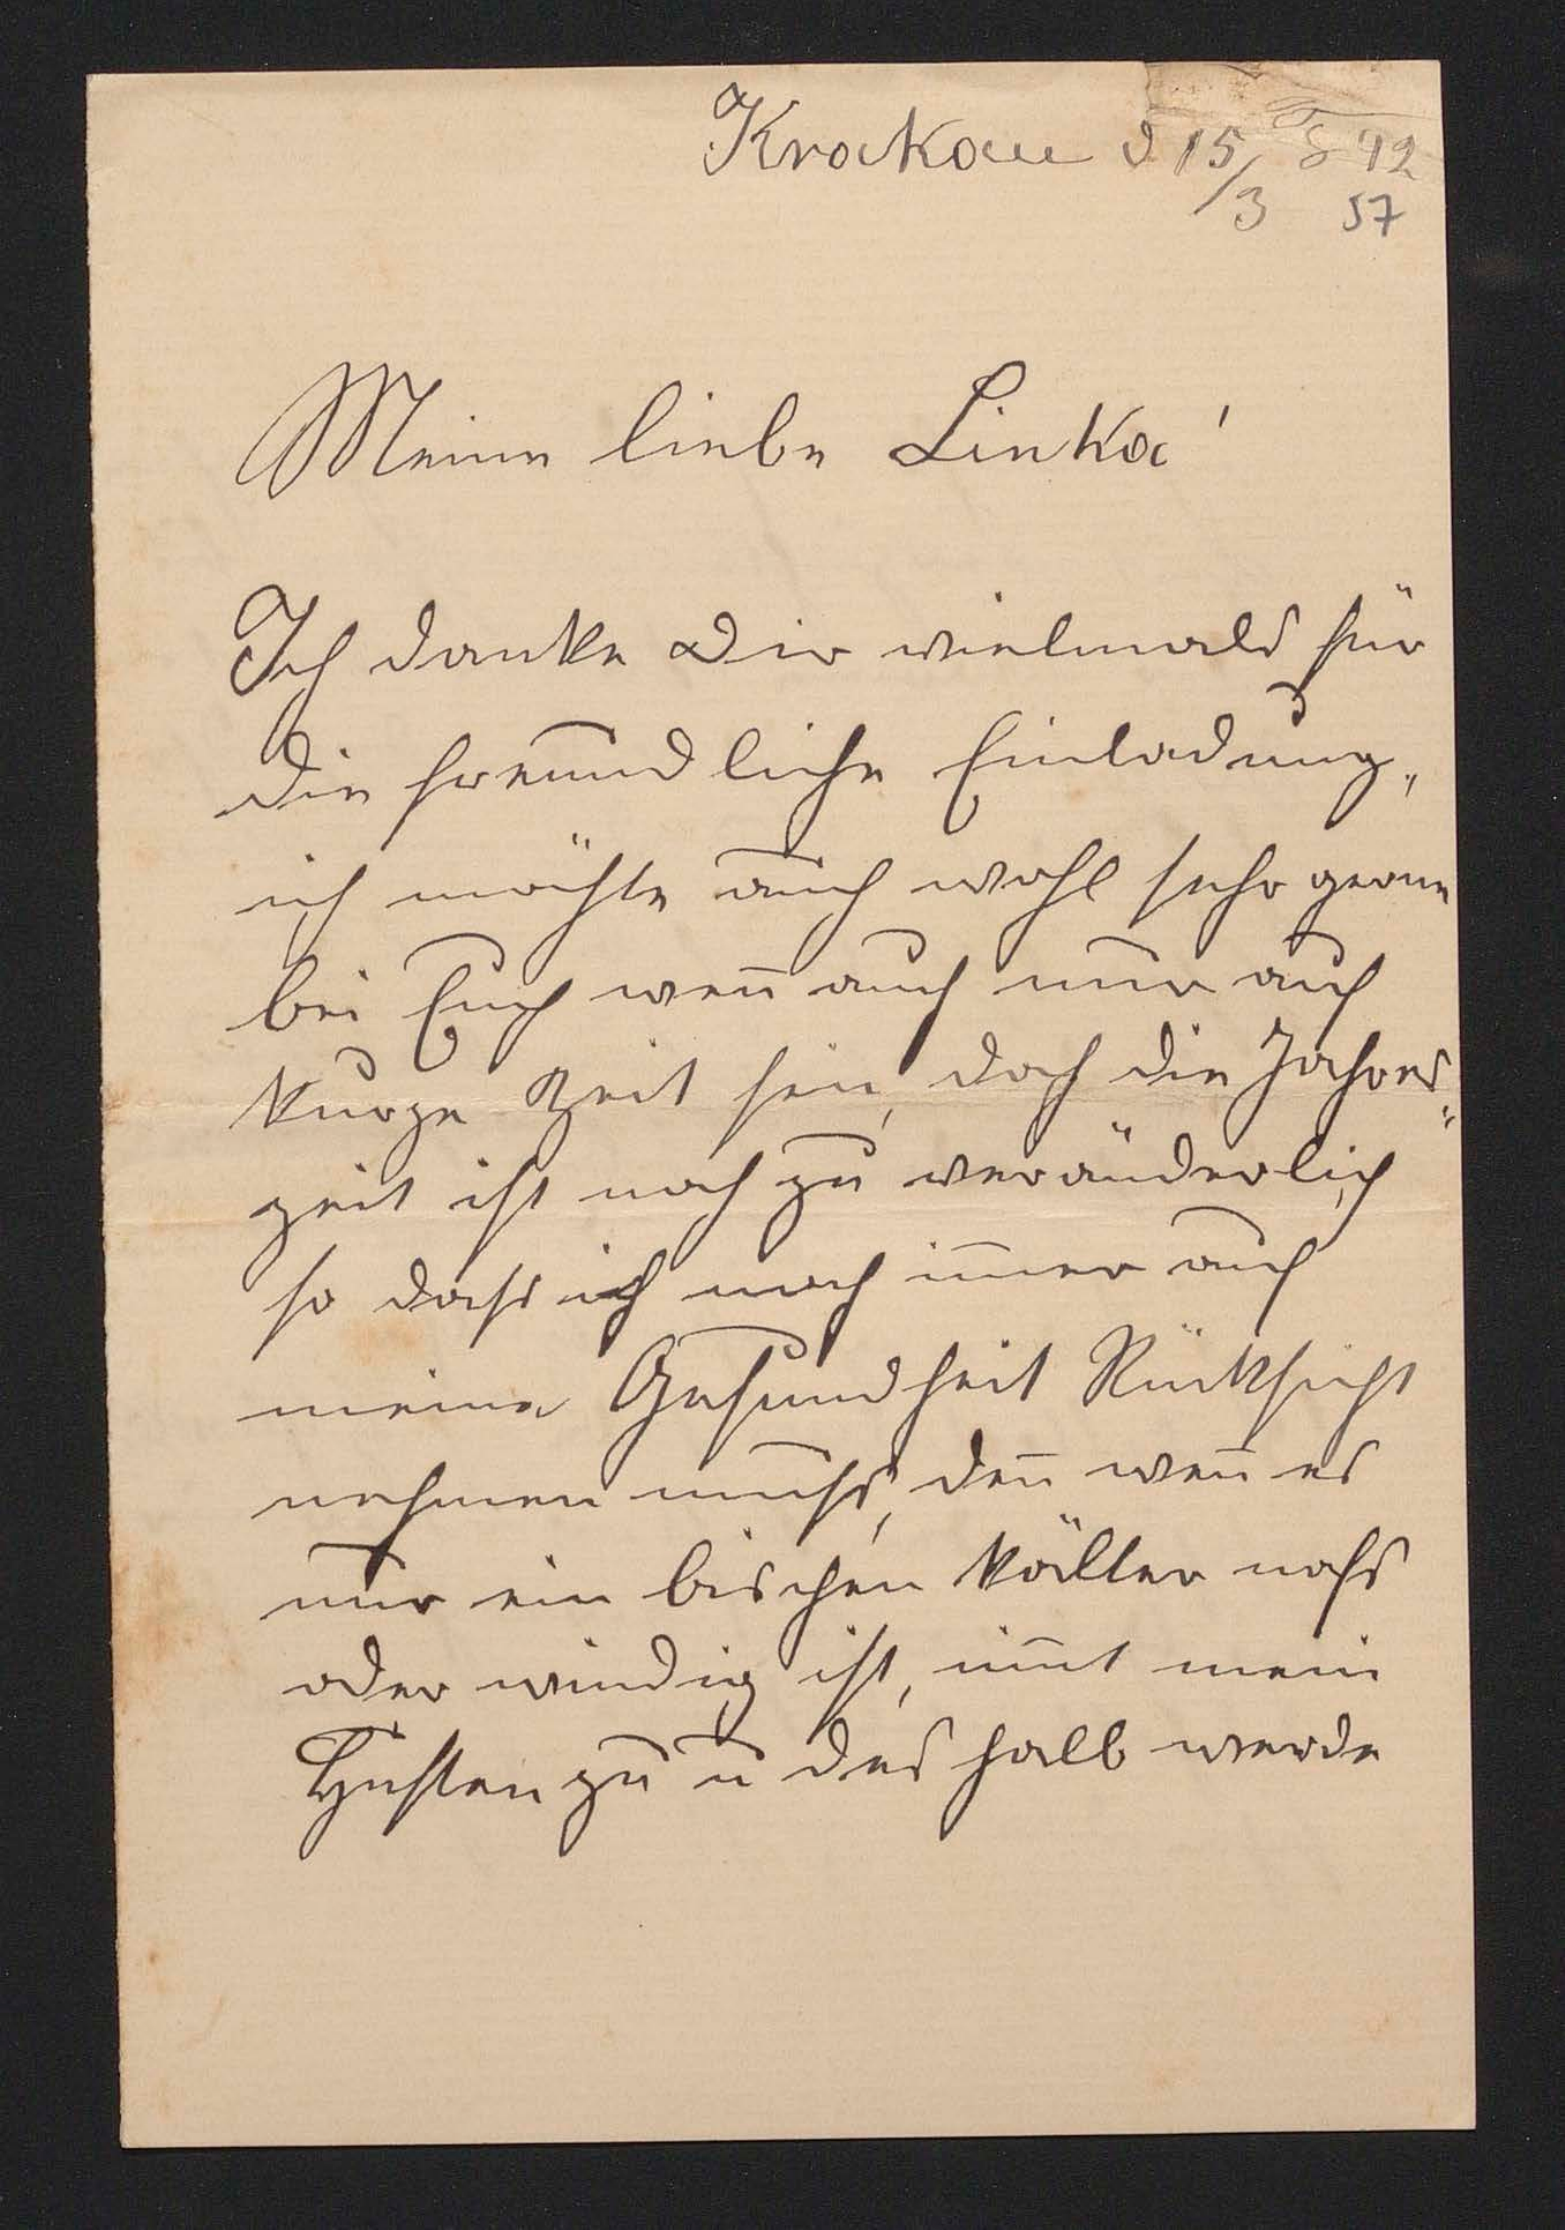 Krakau d 15/3 892
57
Meine liebe Linka!
Ich danke Dir vielmals für
die freundliche Einladung,
ich möchte auch wohl sehr gerne
bei Euch wen̄ auch nur auf
kurze Zeit sein, doch die Jahres„
zeit ist noch zu veränderlich
so dass ich noch im̄er auf
meine Gesundheit Rücksicht
nehmen muss, den̄ wen̄ es
nur ein bischen kälter nass
oder windig ist, nim̄t mein
Husten zu u deshalb werde